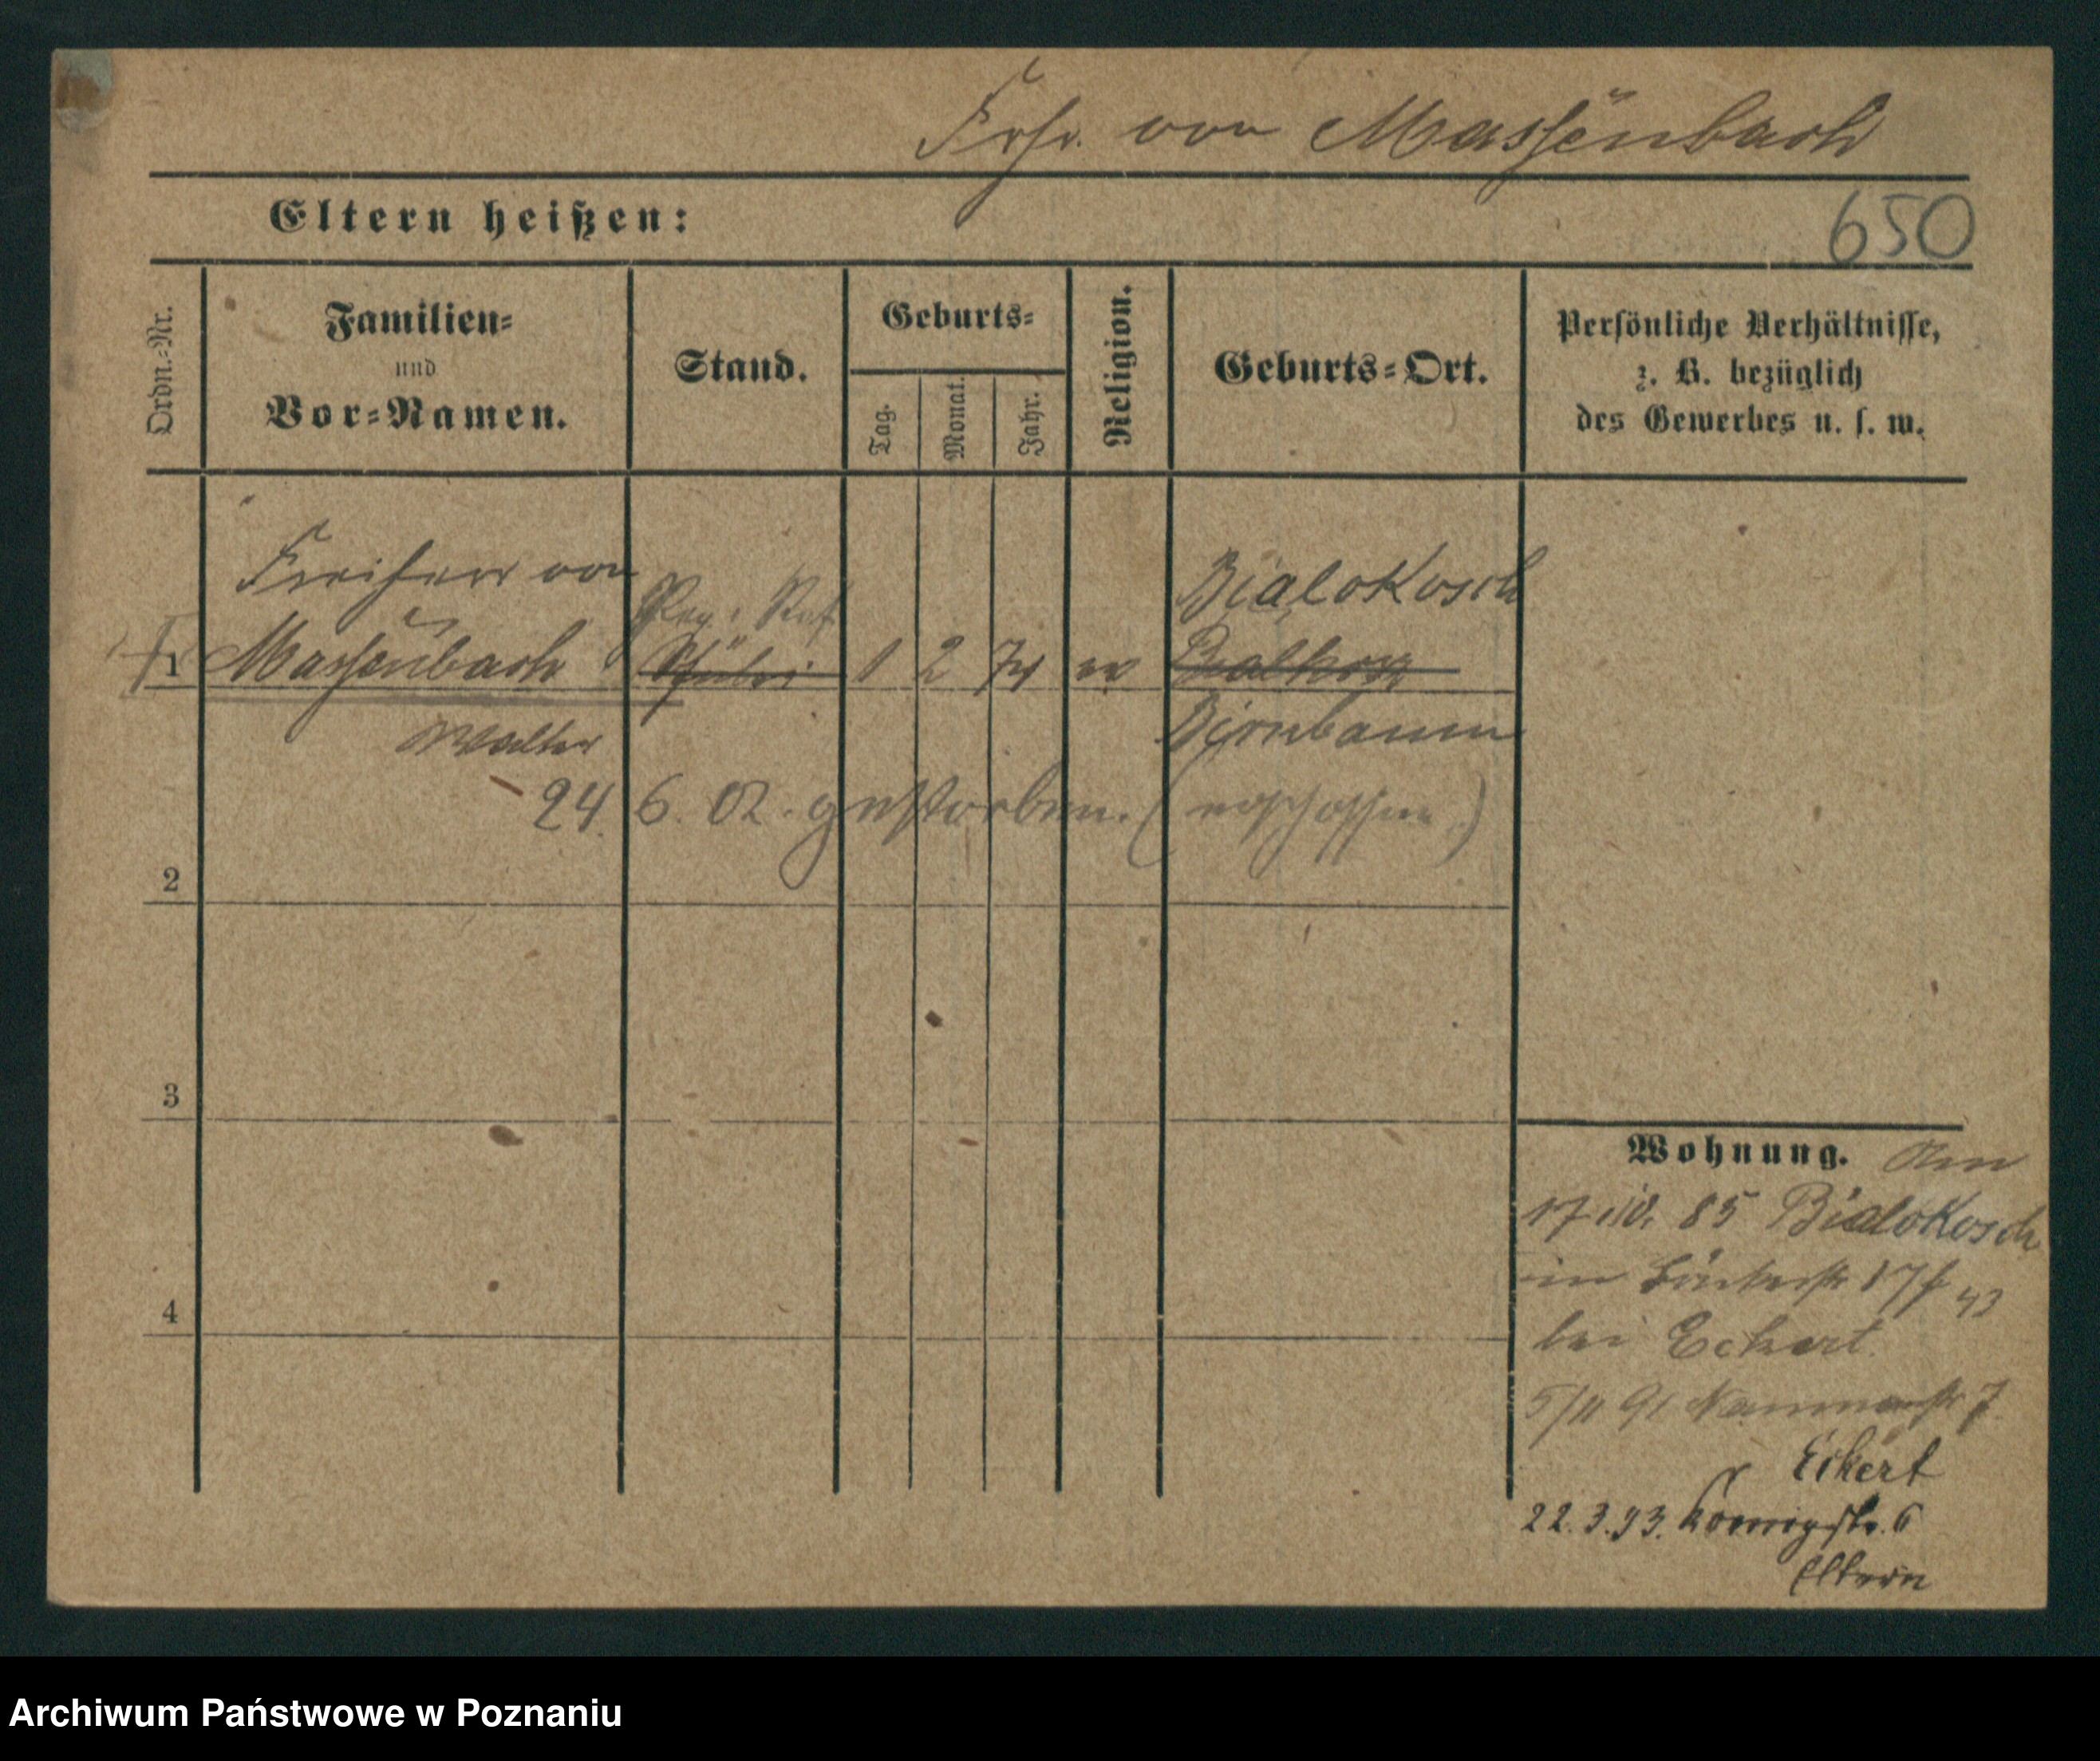 Frhr. von Massenbach
Eltern heißen:
650
Ordn.-Nr.
Familien-
und
Vor-Namen.
Stand.
Geburts-
Tag.
Monat.
Jahr.
Religion.
Geburts-Ort.
Persönliche Verhältnisse,
z. B. bezüglich
des Gewerbes u. s. w.
Freiherr von
Bialokosch
Reg. Ref
1 Massenbach Schüler 1 2 74 ev
Birnbaum
Walter
24. 6. 02. gestorben. (erschossen)
2
3
4
Wohnung.
17. 85 Bialokosch
bei Eckert.
5/11 91 Naumannstr 7.
Eckert
22.3.93. Königstr. 6
Eltern
Archiwum Państwowe w Poznaniu